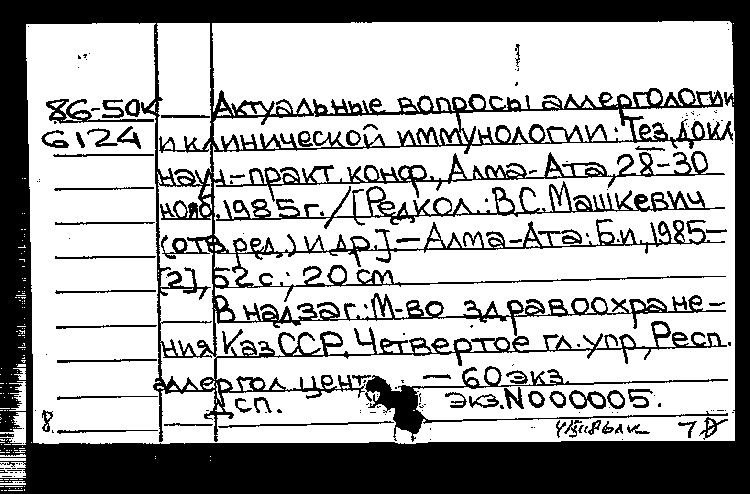 86-50к Актуальные вопросы аллергологии
6124 и клинической иммунологии: Тез. докл.
науч.-практ. конф., Алма-Ата, 28-30
нояб. 1985 г. / [Редкол.: В.С. Машкевич
(отв. ред.) и др.]. — Алма-Ата: Б.и., 1985.—
[2], 52 с.; 20 см.
В надзаг.: М-во здравоохране-
ния КазССР, Четвертое гл. упр., Респ.
аллергол. центр — 60 экз.
Дсп. Экз. N000005.
8.